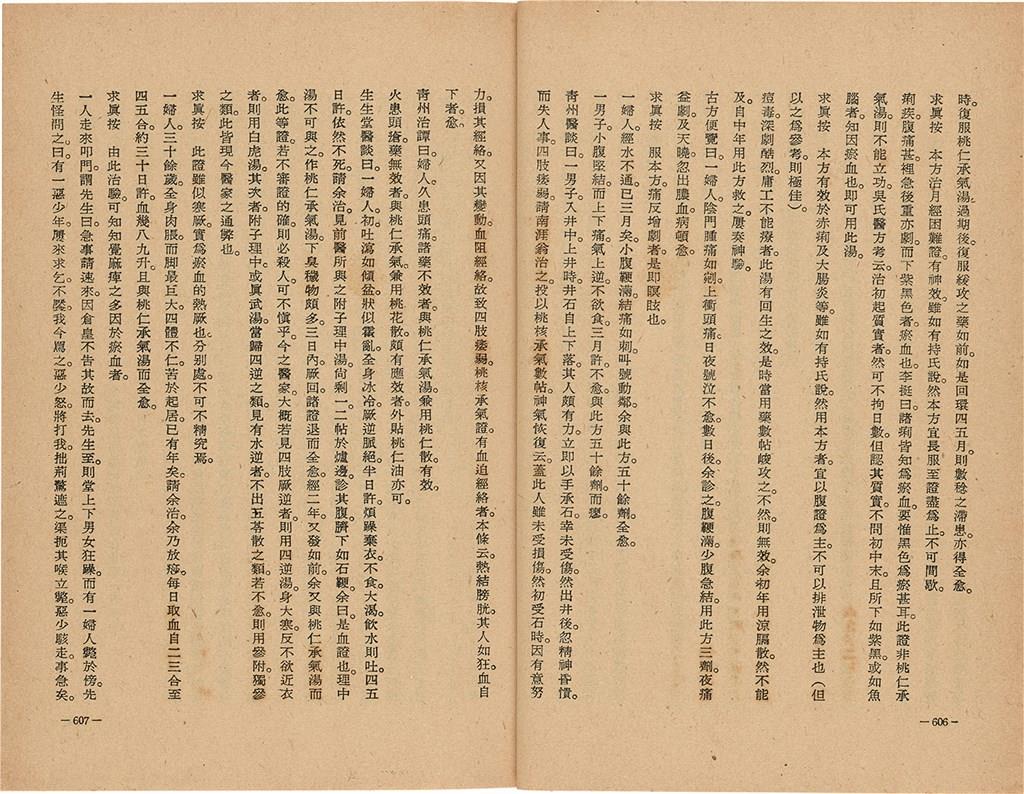 時。復服桃仁承氣湯。過期後。復服緩攻之藥如前。如是回環四五月。則數稔之滯患。亦得全愈。
求眞按　本方治月經困難證。有神效。雖如有持氏說。然本方宜長服至證盡爲止。不可間歇。
痢疾。腹痛甚。裡急後重亦劇。而下紫黑色者。瘀血也。李挺曰。諸痢皆知爲瘀血。要惟黑色爲瘀甚耳。此證非桃仁承
氣湯。則不能立功。吳氏醫方考云。治初起質實者。然可不拘日數。但認其質實。不問初中末。且所下如紫黑。或如魚
腦者。知因瘀血也。即可用此湯。
求眞按　本方有效於赤痢及大腸炎等。雖如有持氏說。然用本方者。宜以腹證爲主。不可以排泄物爲主也（但
以之爲參考則極佳）。
痘毒深劇酷烈。庸工不能療者。此湯有回生之效。是時當用藥數帖。峻攻之。不然則無效。余初年用涼膈散。然不能
及。自中年用此方救之。屢奏神驗。
古方便覽曰。一婦人陰門腫痛如剜。上衝頭痛。日夜號泣不愈。數日後。余診之。腹鞕滿。少腹急結。用此方三劑。夜痛
益劇。及天曉。忽出膿血。病頓愈。
求眞按　服本方。痛反增劇者。是即瞑眩也。
一婦人經水不通。已三月矣。小腹鞕滿。結痛如刺。叫號動鄰。余與此方五十餘劑全愈。
一男子。小腹堅結而上下痛。氣上逆。不欲食。三月許不愈。與此方五十餘劑而瘳。
青州醫談曰。一男子入井中。上井時。井石自上下落。其人頗有力。立即以手承石。幸未受傷。然出井後。忽精神昏憒。
而失人事。四肢痿弱。請南涯翁治之。投以桃核承氣數帖。神氣恢復云。蓋此人雖未受損傷。然初受石時。因有意努
力損其經絡。又因其變動。血阻經絡。故致四肢痿弱。桃核承氣證。有血迫經絡者。本條云。熱結膀胱。其人如狂。血自
下者愈。
青州治譚曰。婦人久患頭痛。諸藥不效者。與桃仁承氣湯。兼用桃仁散有效。
火患頭瘡。藥無效者。與桃仁承氣。兼用桃花散。頗有應效者。外貼桃仁油亦可。
生生堂醫談曰。一婦人初吐瀉如傾盆。狀似霍亂。全身冰冷。厥逆脈絕。半日許。煩躁棄衣。不食大渴。飲水則吐。四五
日許。依然不死。請余治。見前醫所與之附子理中湯。尙剩一二帖於爐邊。診其腹。臍下如石鞕。余曰。是血證也。理中
湯不可與之。作桃仁承氣湯。下臭穢物頗多。三日內。厥回。諸證退而全愈。經二年。又發如前。余又與桃仁承氣湯而
愈。此等證。若不審證的確。則必殺人。可不愼乎。今之醫家。大概若見四肢厥逆者。則用四逆湯。身大寒。反不欲近衣
者。則用白虎湯。其次者。附子理中。或眞武湯。當歸四逆之類。見有水逆者。不出五苓散之類。若不愈。則用參附。獨參
之類。此皆現今醫家之通弊也。
求眞按　此證雖似寒厥。實爲瘀血的熱厥也。分別處。不可不精究焉。
一婦人。三十餘歲。全身肉脹。而脚最巨大。四體不仁。苦於起居。已有年矣。請余治。余乃放痧。每日取血自二三合至
四五合。約三十日許。血幾八九升。且與桃仁承氣湯而全愈。
求眞按　由此治驗。可知知覺麻痺之多因於瘀血者。
一人走來叩門。謂先生曰。急事請速來。因倉皇。不告其故而去。先生至。則堂上下男女狂躁。而有一婦人斃於傍。先
生怪問之。曰。有一惡少年。屢來求乞。不饜。我今罵之。惡少怒。將打我。拙荊驚遮之。渠扼其喉立斃。惡少駭走。事急矣。
—606—
—607—